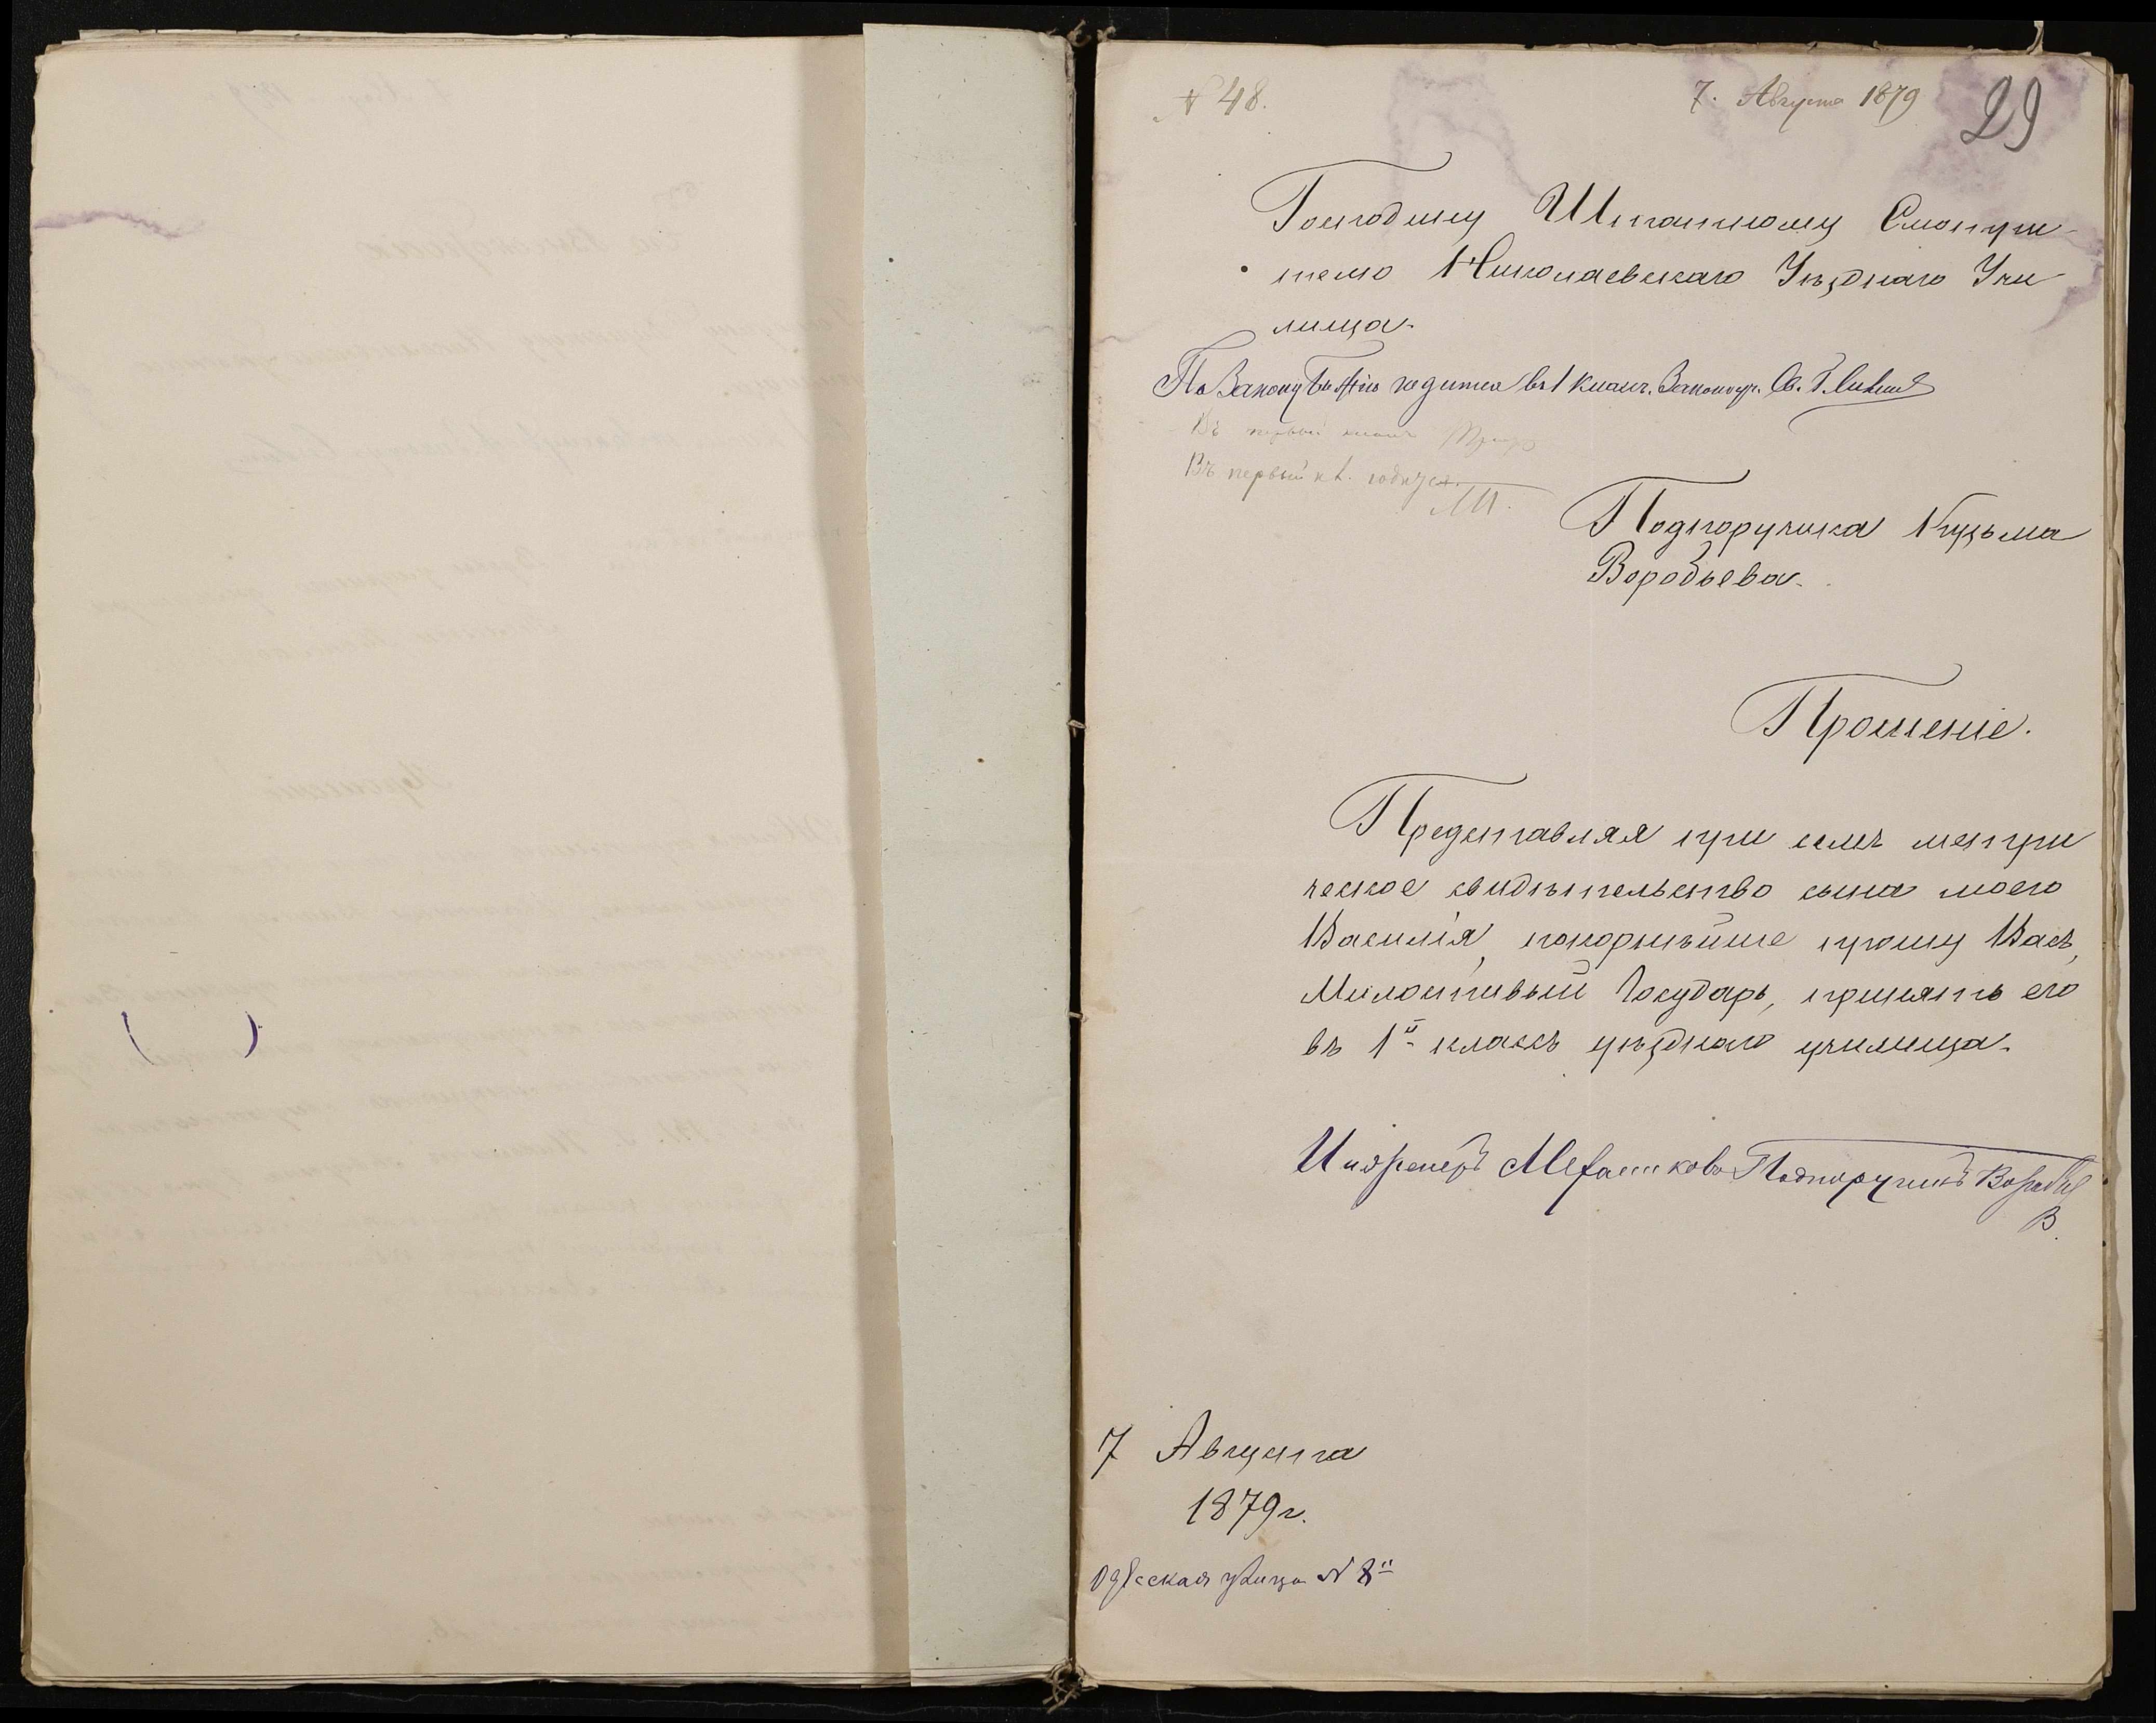 № 48.
7. Августа 1879
29
Господину Штатному Смотри-
телю Николаевскаго Уѣзднаго Учи
лища.
По Закону Божію годится въ 1 классъ. Законоуч. Св.
Въ первый классъ
Въ первый кл. годится.
Подпоручика Кузьма
Воробьева.
Прошеніе.
Представляя при семъ метри
ческое свидѣтельство сына моего
Василія, покорнѣйше прошу Васъ,
Милостивый Государь, принять его
въ 1й классъ уѣзднаго училища.
Инженеръ Механиковъ Подпоручикъ Воробье
в
7 Августа
1879 г.
Одесская улица № 8й